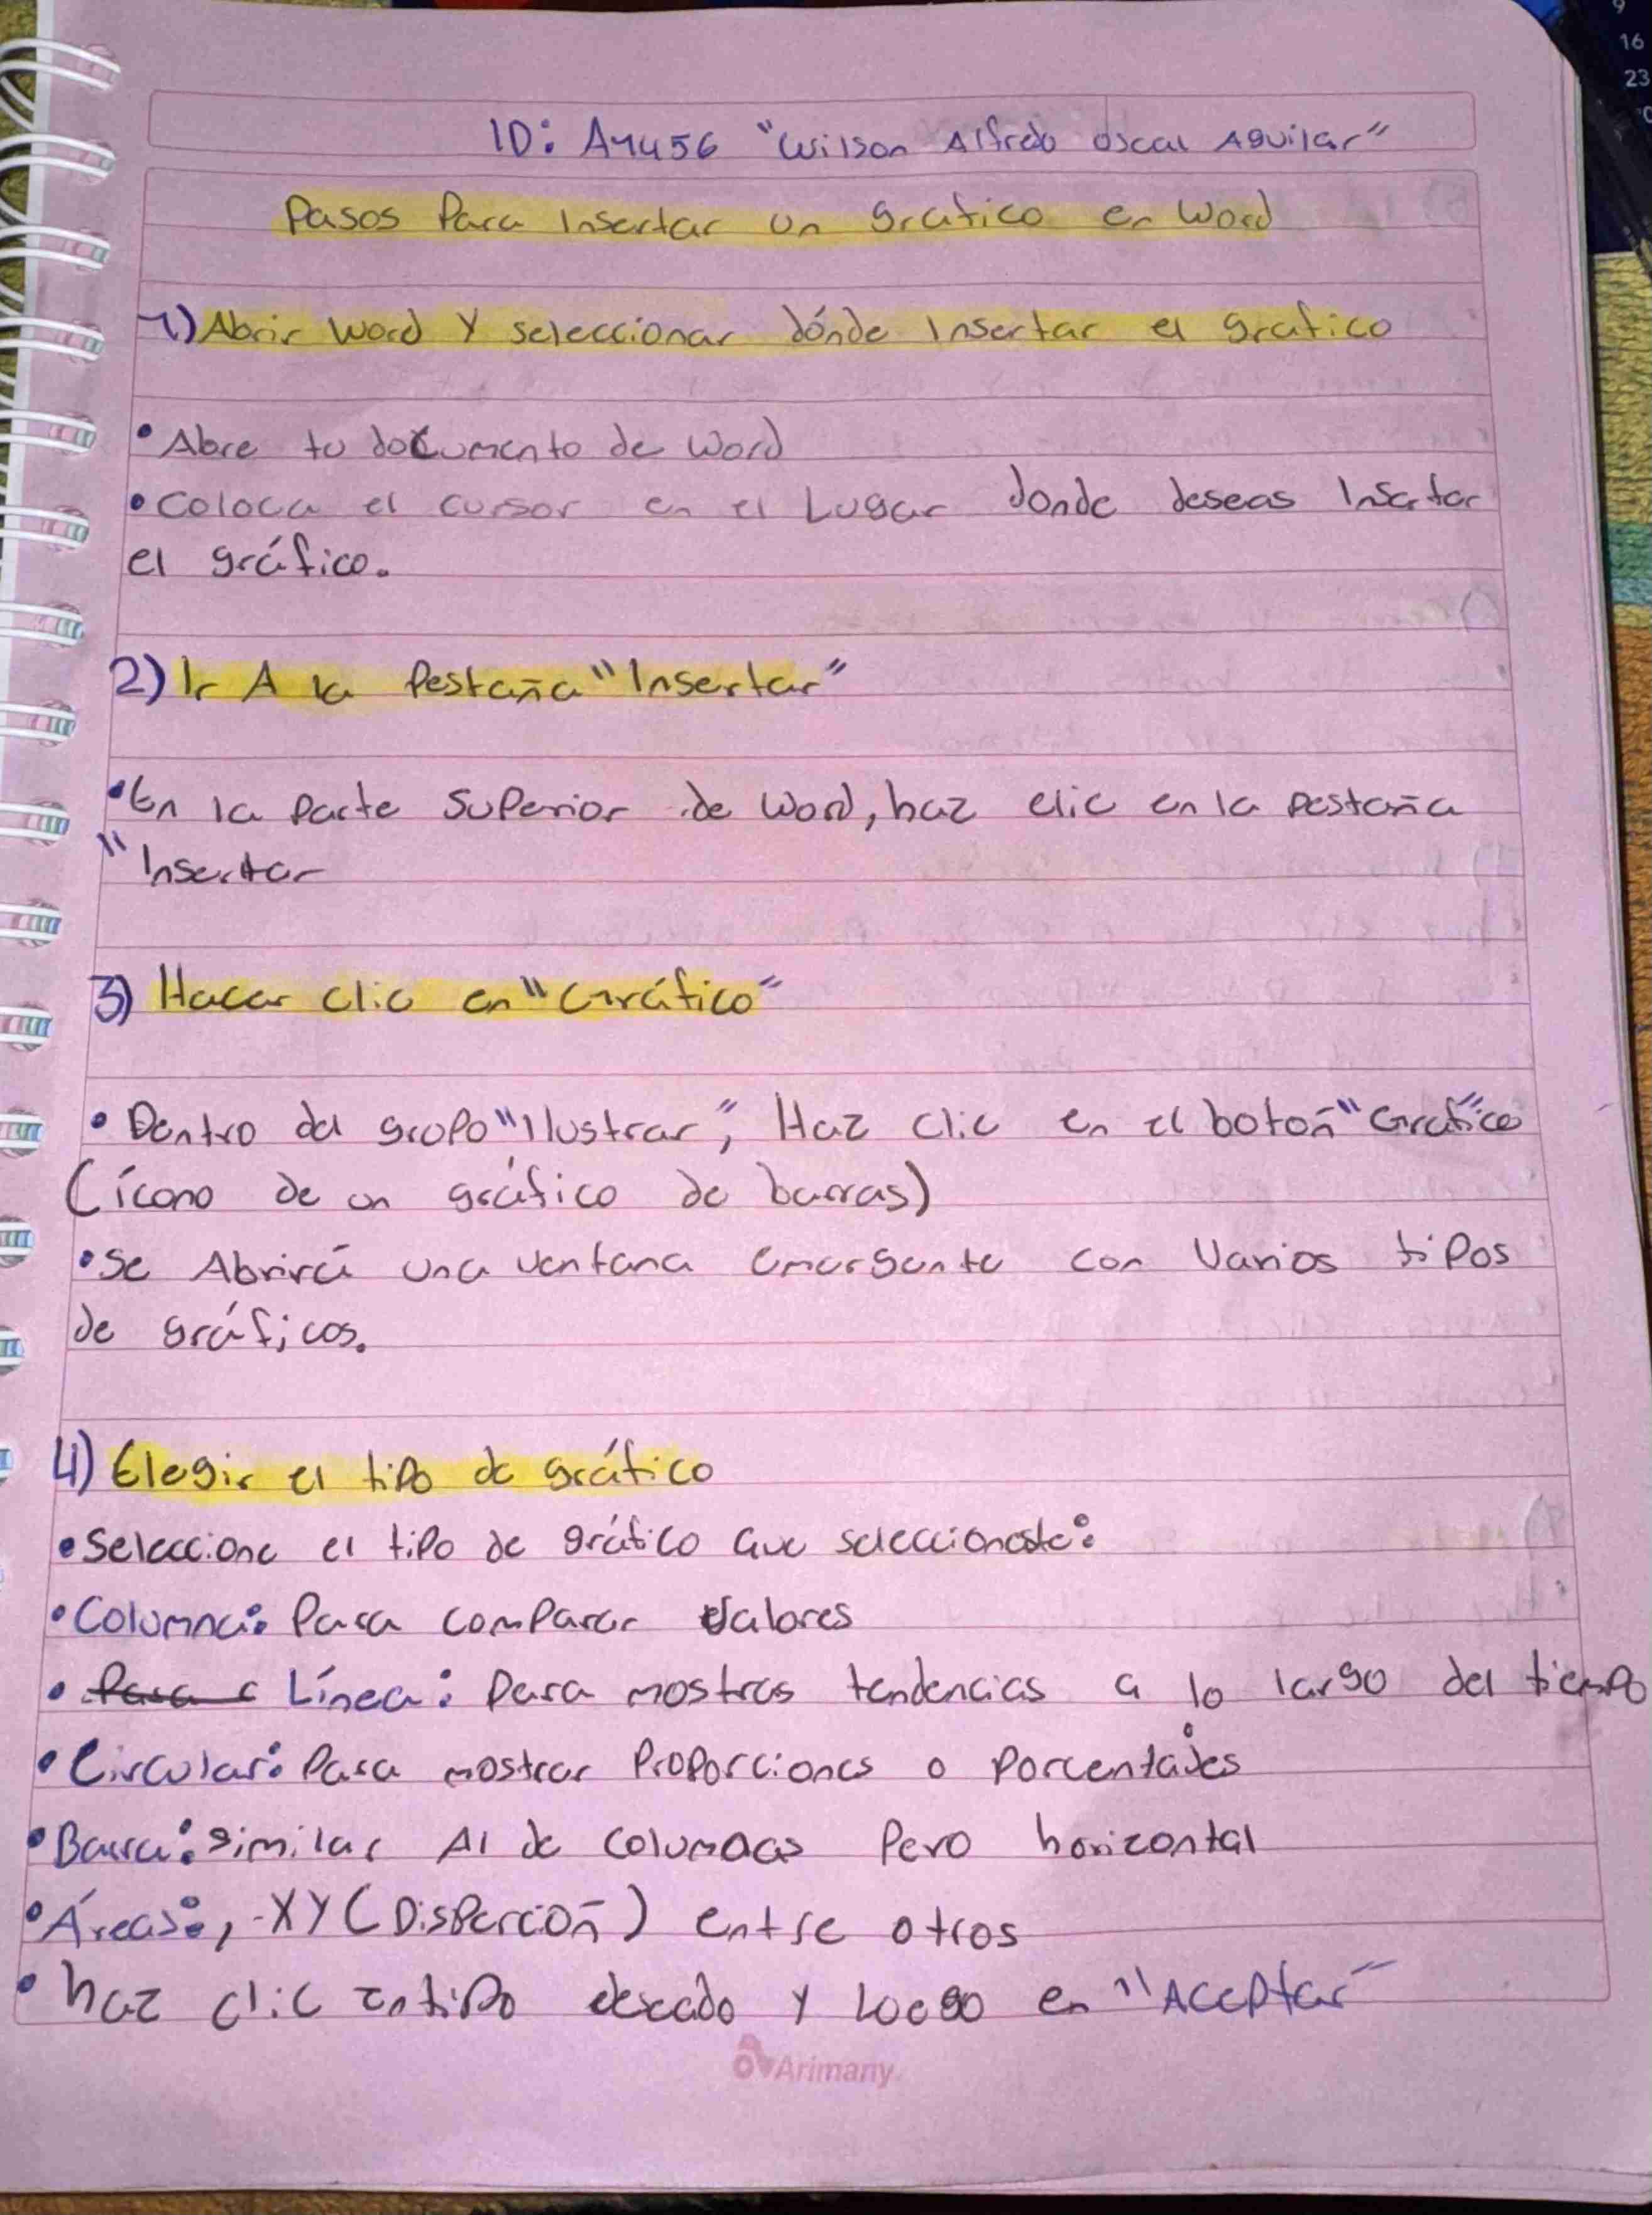 ID: A1456 "Wilson Alfredo Oscal Aguilar"
Pasos Para Insertar un grafico en Word
1) Abrir Word Y seleccionar dónde Insertar el grafico
• Abre tu documento de Word
• Coloca el cursor en el Lugar donde deseas Insertar
el gráfico.
2) Ir A la Pestaña "Insertar"
• En la Parte Superior de Word, haz clic en la pestaña
" Insertar
3) Hacer clic en "Gráfico"
• Dentro del grupo "Ilustrar", Haz clic en el botón "Grafico"
(ícono de un gráfico de barras)
• Se Abrirá una ventana emergente con Varios tipos
de gráficos.
4) Elegir el tipo de gráfico
• Seleccione el tipo de gráfico que seleccionaste:
• Columna: Para comparar Valores
• Línea: Para mostrar tendencias a lo largo del tiempo
• Circular: Para mostrar Proporciones o Porcentajes
• Barra: similar Al de columnas Pero horizontal
• Áreas:, -XY (Disperción) entre otros
• haz clic tipo deseado y luego en "Aceptar"
Arimany
9
16
23